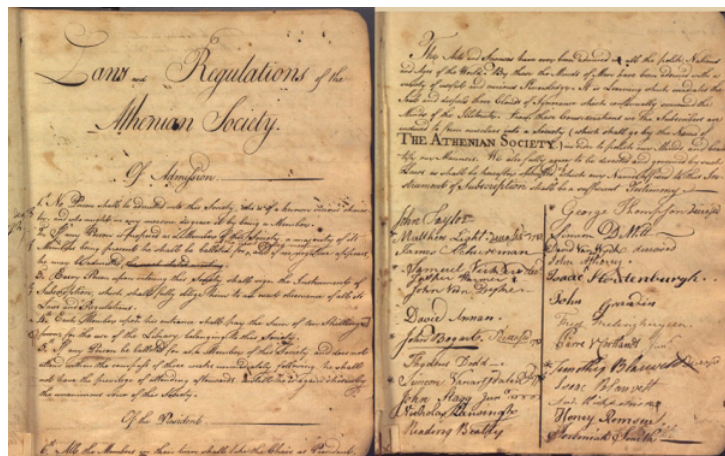 Laws and Regulations of the
Athenian Society.
Of Admission.
1. No Person shall be admitted into this Society who is of a known vicious character
by, and who might in any manner disgrace it by being a Member.
2. If any Person is proposed as a Member of this Society, a majority of its
Members being present he shall be balloted for, and if no negative appears,
he may be admitted
3. Every Person upon entering this Society shall sign the Instrument of
Subscription, which shall fully oblige them to an exact observance of all its
Laws and Regulations.
4. Each Member upon his entrance shall pay the Sum of ten Shillings
for the use of the Library belonging to this Society.
5. If any Person be balloted for as a Member of this Society and does not
attend within the compass of three weeks immediately following he shall
not have the privilege of attending afterwards
the unanimous voice of this Society.
Of the President.
6. All the Members in their turn shall take the Chair as President,
The Arts and Sciences have ever been admired in all the polite Nations
and Ages of the World. By these the Minds of Men have been stored with a
variety of useful and various Knowledge. It is Learning which
and those Clouds of Ignorance which continually surround the
Minds of the Illiterate. From these Considerations we the Subscribers are
induced to form ourselves into a Society (which shall go by the Name of
THE ATHENIAN SOCIETY) in order to polish our Minds and
our Manners. We also fully agree to be directed and governed by such
Laws as shall be hereafter
of Subscription shall be a sufficient Testimony
John Taylor
Matthew Light deceased
James Schureman
John Van Dyke
David Annan
John Bogart deceased
Thaddeus Dodd
Simeon Vanarsdalen
John Hagg Junr
Nicholas Lansingh
Reading Beatty
George Thompson deceased
Simeon D. Witt
deceased
John
Isaac Stoutenburgh
John
Fred Frelinghuysen
Timothy Blauvelt deceased
Isaac Blauvelt
Henry Remsen
Jeremiah Smith